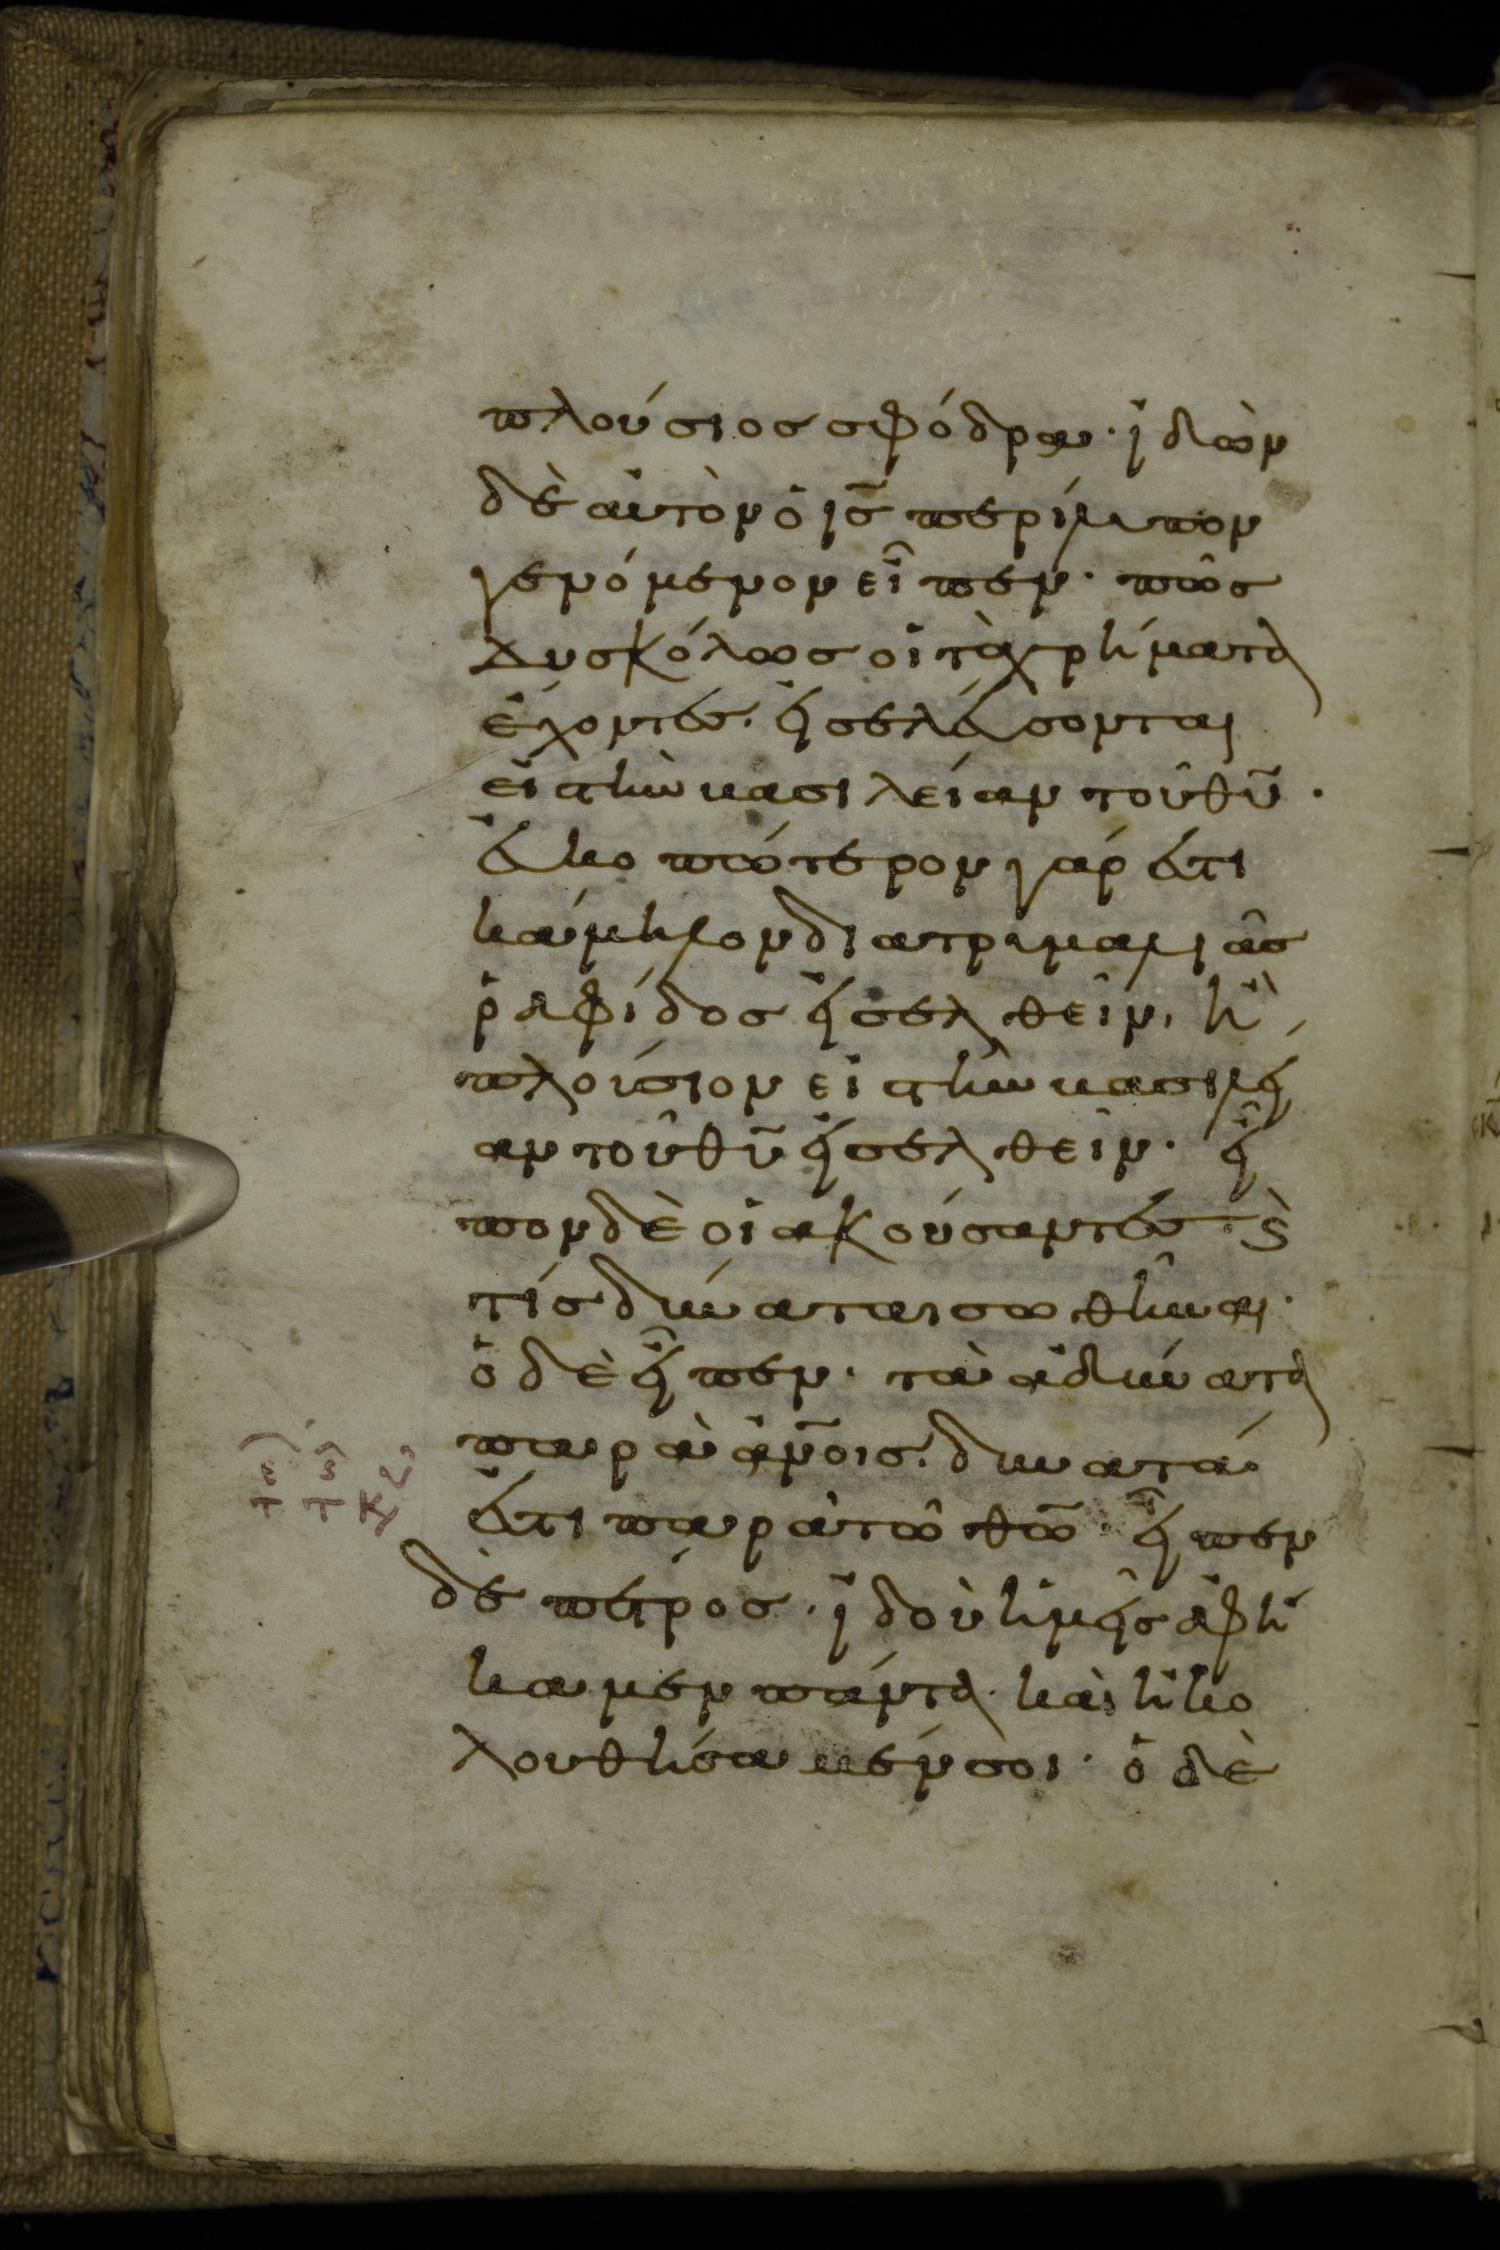 πλούσιος σφόδρα· ἰδὼν
δὲ αὐτὸν ὁ ις̅ περίλυπον
γενόμενον εἶπεν· πῶς
δυσκόλως οἱ τὰ χρήματα
ἔχοντες· εἰσελεύσονται
εἰς τὴν βασιλείαν τοῦ θυ̅·
εὐκοπώτερον γάρ ἐστι
κάμηλον διὰ τρυμαλιᾶς
ῥαφίδος εἰσελθεῖν, ἢ
πλούσιον εἰς τὴν βασιλεί
αν τοῦ θυ̅ εἰσελθεῖν· εἶ
πον δὲ οἱ ἀκούσαντες· ϗ
τίς δύναται σωθῆναι·
ὁ δὲ εἶπεν· τὰ ἀδύνατα
παρὰ ἀν̅οις. δυνατά
ἐστι παρὰ τῶ θω̅· εἶπεν
δὲ πέτρος· ἰδοὺ ἡμεῖς ἀφή
καμεν πάντα· καὶ ἠκο
λουθήσαμέν σοι· ὁ δὲ